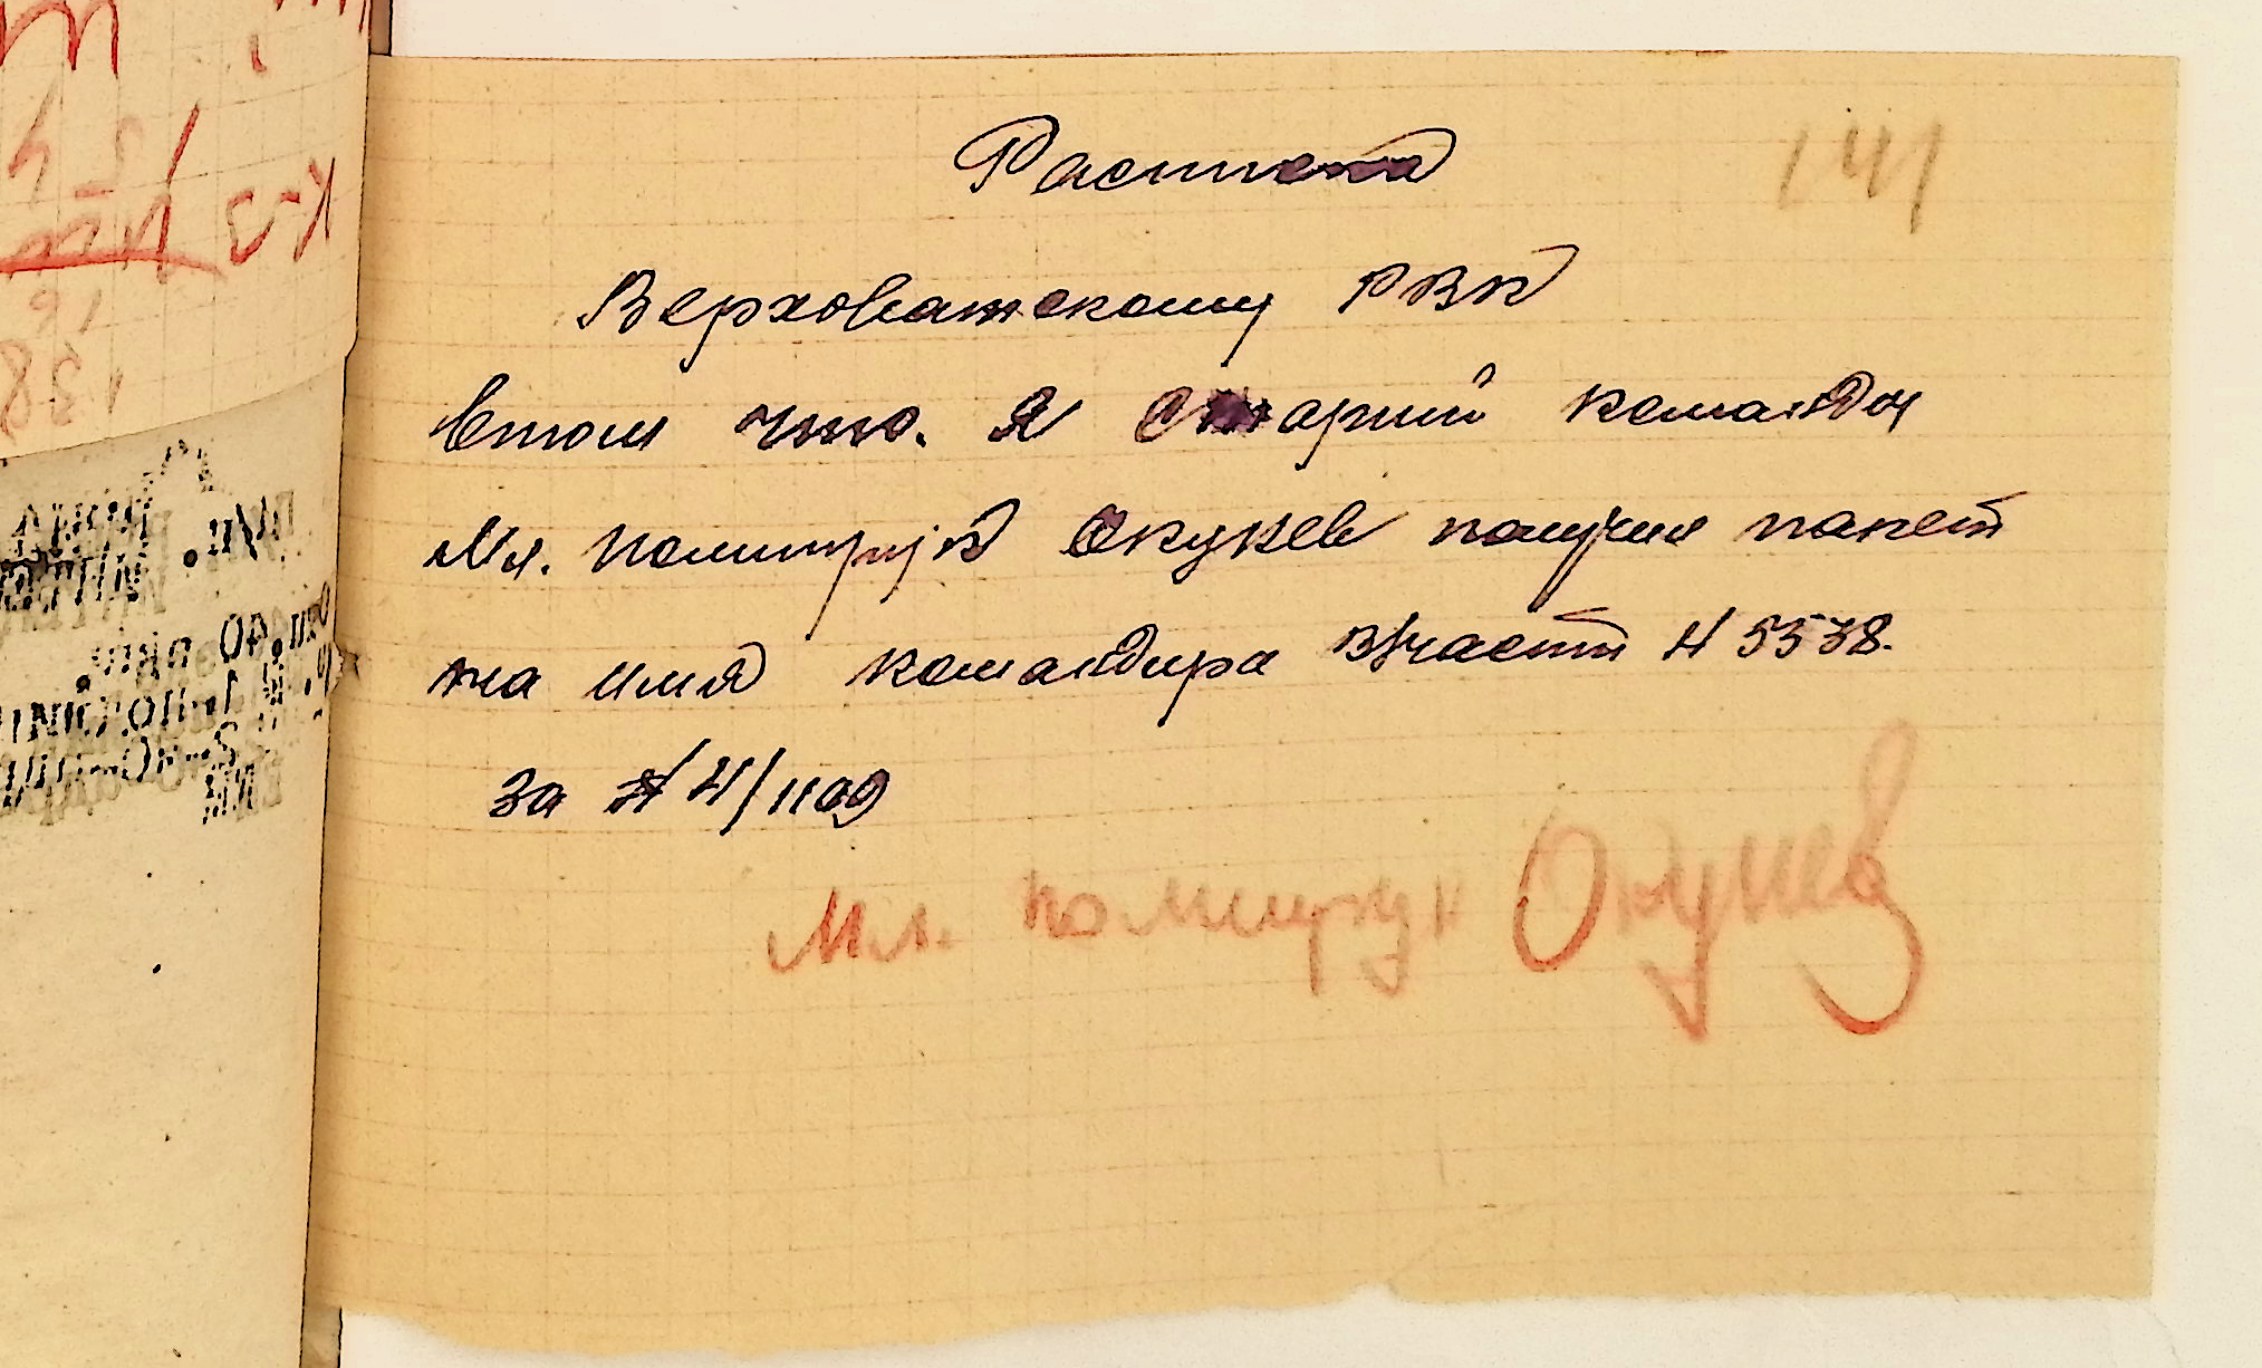 Расписка
141
Верховажскому РВК
втом что. Я Старший команды
Мл. политрук Окунев получил пакет
на имя командира в/части № 5538.
за № 4/1109
Мл. политрук Окунев
138